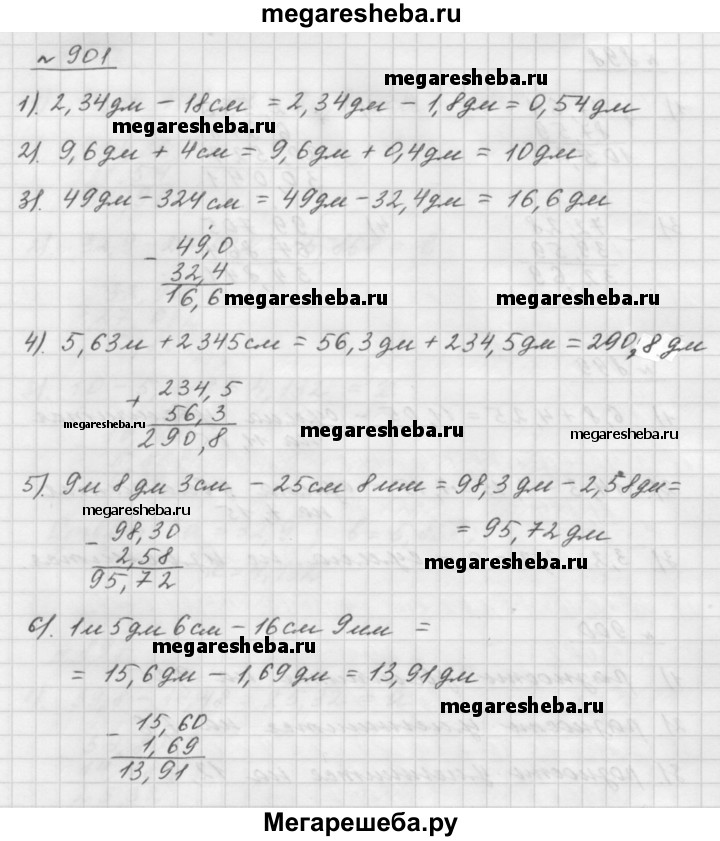 megaresheba.ru
№ 901
megaresheba.ru
1). 2,34дм - 18см = 2,34дм - 1,8дм = 0,54дм
megaresheba.ru
2). 9,6дм + 4см = 9,6дм + 0,4дм = 10дм
3). 49дм - 324см = 49дм - 32,4дм = 16,6дм
- 49,0
32,4
16,6
megaresheba.ru megaresheba.ru
4). 5,63м + 2345см = 56,3дм + 234,5дм = 290,8дм
+ 234,5
56,3
290,8
megaresheba.ru megaresheba.ru megaresheba.ru
5). 9м 8дм 3см - 25см 8мм = 98,3дм - 2,58дм =
megaresheba.ru
= 95,72дм
- 98,30
2,58
95,72
megaresheba.ru
6). 1м 5дм 6см - 16см 9мм =
megaresheba.ru
= 15,6дм - 1,69дм = 13,91дм
megaresheba.ru
- 15,60
1,69
13,91
megaresheba.ru
Мегарешеба.ру